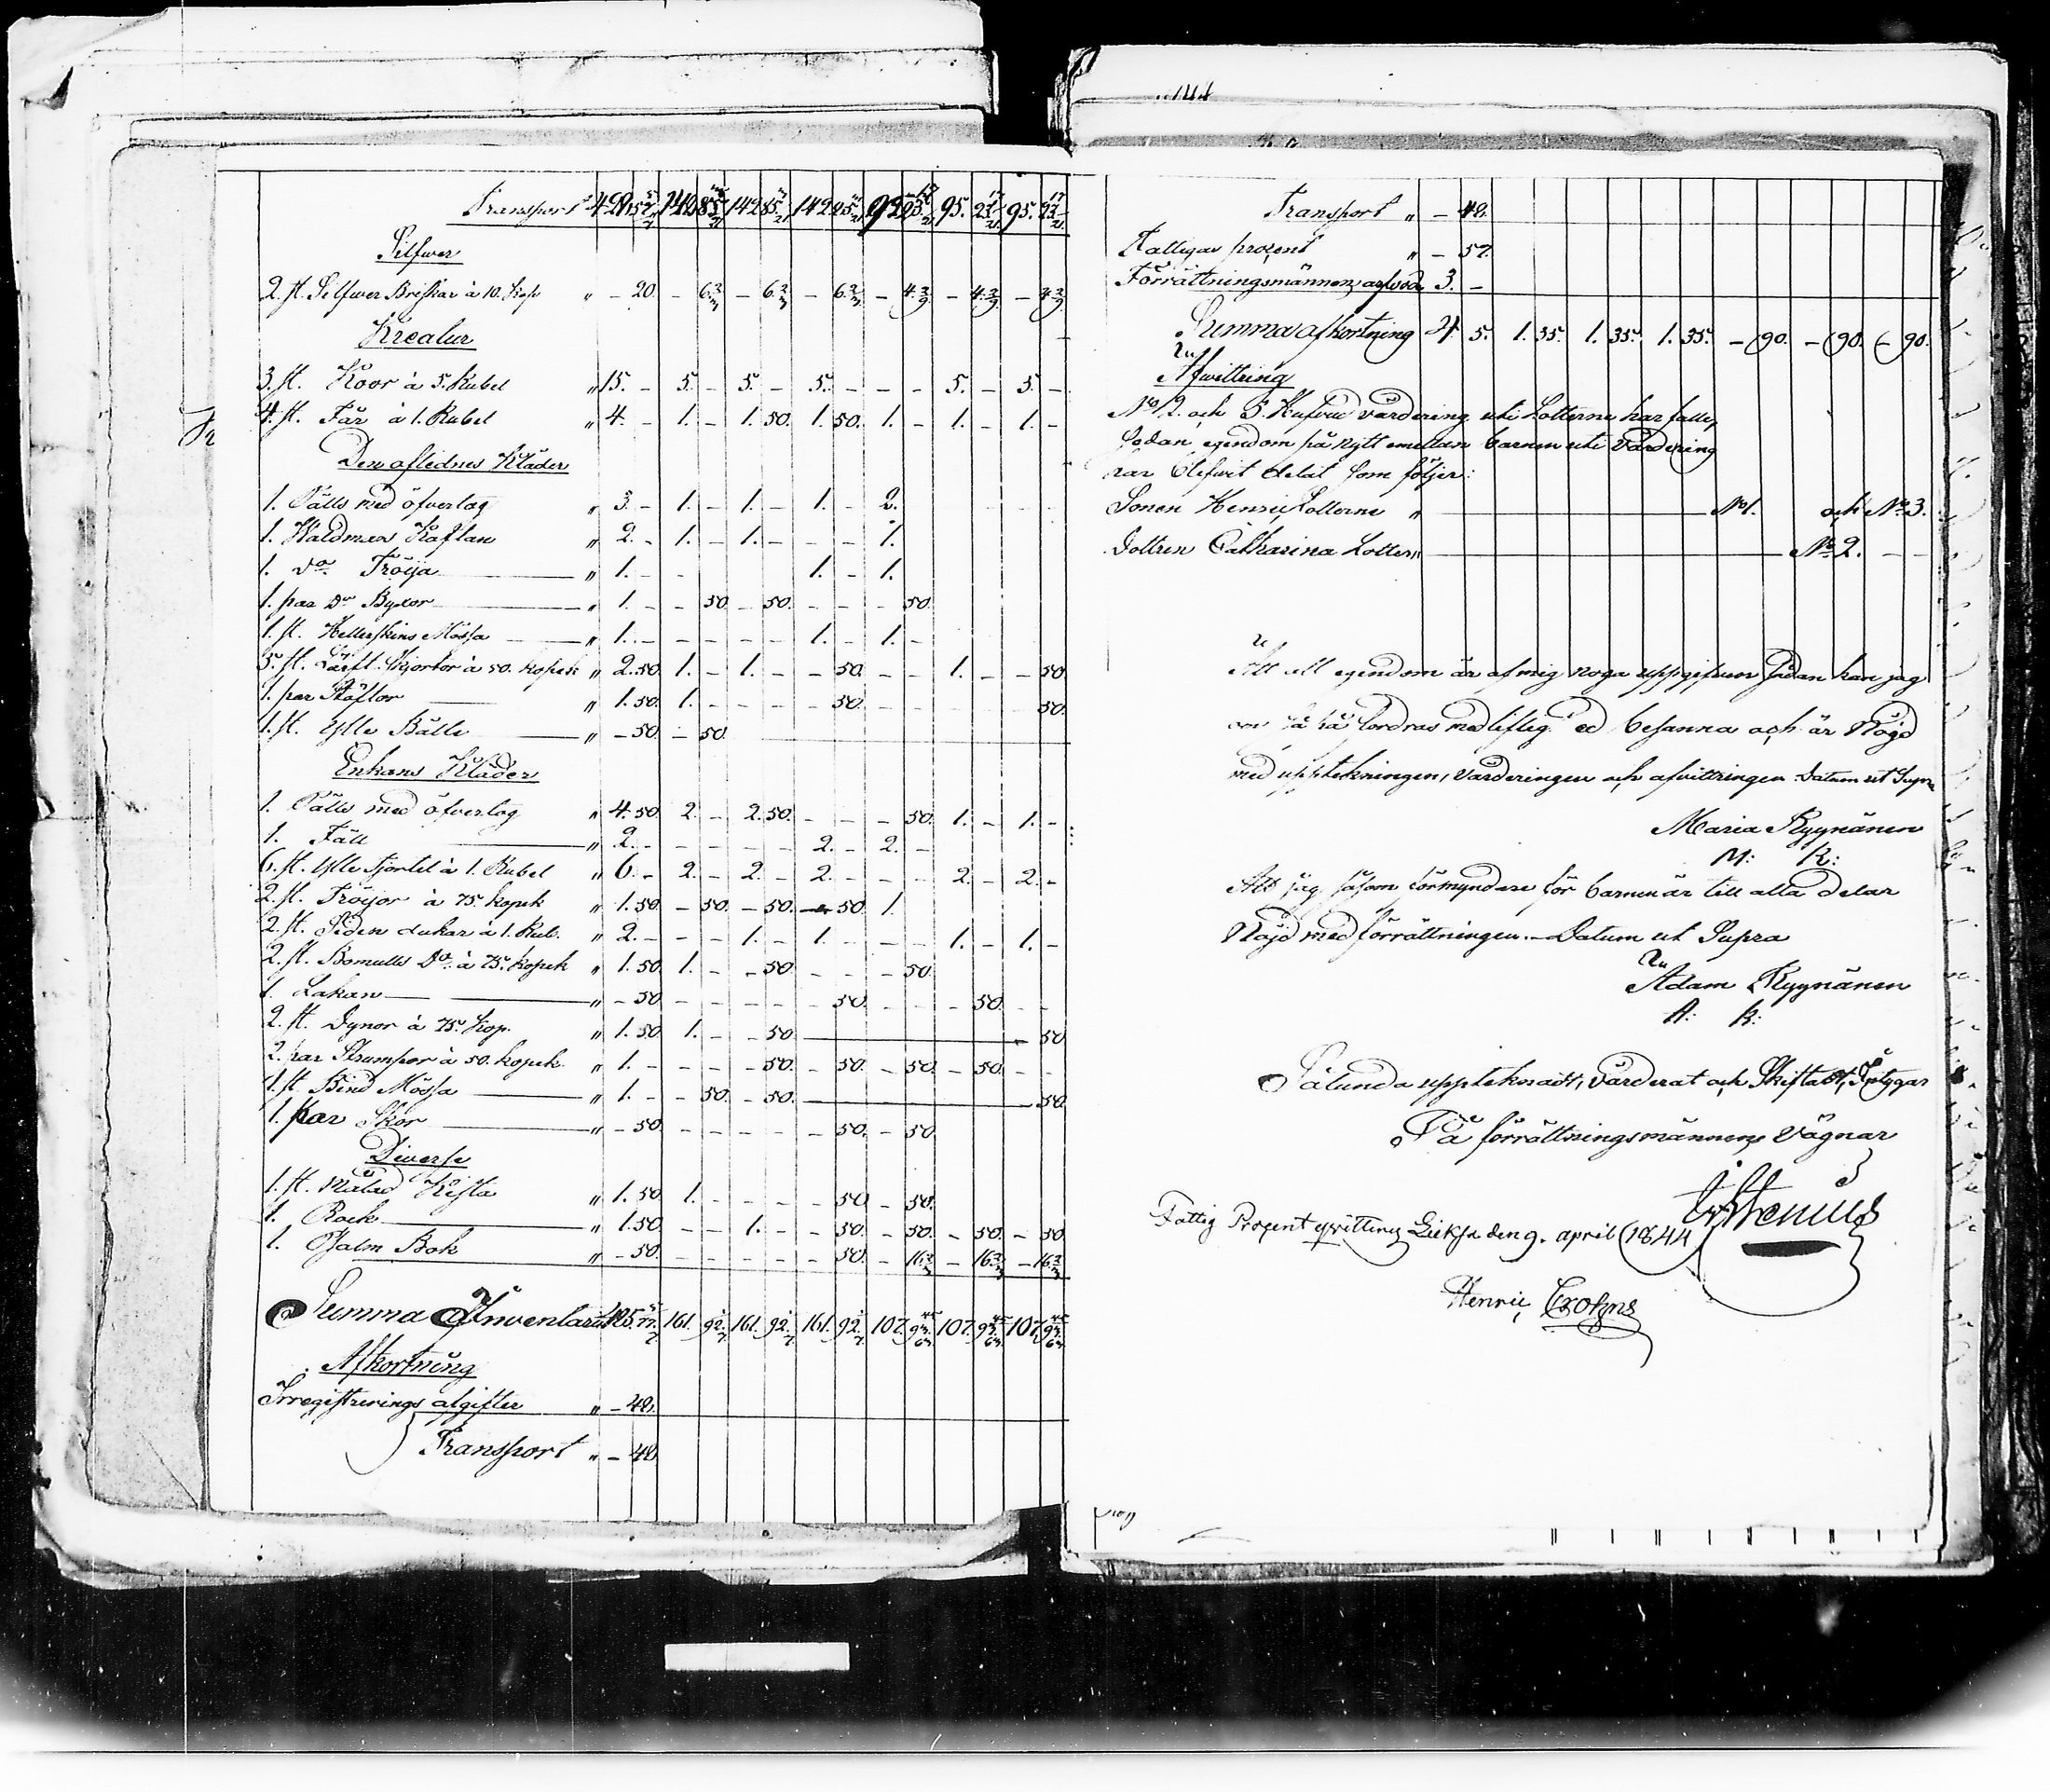 Transport 428. 57 142 85 142 85 142 85 95. 23 95. 23 95. 23
Silfwer
2. st. Silfwer Briskar à 10. Kop " – 20. – 6 2/3 – 6 2/3 – 6 2/3 – 4 4/9 – 4 4/9 – 4 4/9
Kreatur
3. st. Koor à 5. Rubel " 15. – 5. – 5. – 5. – – – 5. – 5. –
4. st. Får à 1. Rubel " 4. – 1. – 1. 50. 1. 50. 1. – 1. – 1. –
Den aflednes Kläder
1. Pälls med öfverlag " 3. – 1. – 1. – 1. – 2.
1. Waldmars Kaftan " 2. – 1. – 1. – – – 1.
1. do Tröija " 1. – – 1. – 1.
1. par Do Byxor " 1. – – 50. – 50. – – – 50.
1. st. Mössa " 1. – – – – – 1. – 1. –
5. st. Lärft. Skjortor à 50. kopek " 2. 50. 1. – 1. – – 50. – – 1. – – 50.
1. par Stöflor " 1. 50. 1. – – – – 50. – – – – – 50.
1. st. Ylle Bälte " – 50. – 50.
Enkans Kläder
1. Pälls med öfverlag " 4. 50. 2. – 2. 50. – – – 50. 1. – 1. –
1. Fäll " 2. – – – – – 2. – 2. –
6. st. Ylle Kjortel à 1. Rubel " 6. – 2. – 2. – 2. – – – 2. – 2. –
2. st. Tröijor à 75. kopek " 1. 50. – 50. – 50. – 50. 1.
2. st. Siden dukar à 1. Rub. " 2. – – – 1. – 1. – – – 1. – 1. –
2. st. Bomulls Do à 75. kopek " 1. 50. 1. – – 50. – – – 50.
1. Lakan " – 50. – – – – – 50. – – – 50. – –
2. st. Dynor à 75. Kop. " 1. 50. 1. – – 50. – 50.
2. par Strumpor à 50. kopek " 1. – – – – 50. – 50. – 50. – 50. – –
1. st Bind Mössa " 1. – – 50. – 50. 50.
1. par Skor " – 50. – – – – – 50. – 50.
Diverse
1. st. Målad Kista " 1. 50. 1. – – – – 50. – 50.
1. Rock " 1. 50. – – 1. – – 50. – 50. – 50. – 50.
1. Psalm Bok " – 50. – – – – – 50. – 16 2/3 – 16 2/3 – 16 2/3
Summa Inventarii 161. 92. 161. 92. 161. 92. 107. 107. 107.
Afkortning
Inregistrerings afgifter " – 48.
Transport " – 48.
144
Transport " – 48.
Fattigas procent " – 57.
Förrättningsmännens arfvode 3. –
Summa afkortning 4. 5. 1. 35. 1. 35. 1. 35. – 90. – 90. – 90.
Afwittring
No 2. och värdering uti Lotterne har fallit,
Sedan egendom på nytt emellan barnen uti Värdering
har blefvit delat som följer:
Sonen Henric Lotterne " No 1. och No 3.
Dottren Catharina Lotten " No 2. – –
Att all egendom är af mig noga uppgifven Sådan kan jag
om så fordras med liflig ed besanna och är Nögd
med upptekningen, värderingen och afvittringen. Datum ut Supra
Maria Kyynänen
M: K:
Att jag såsom förmyndare för barnen är till alla delar
Nöjd med förrättningen. – Datum ut Supra
Adam Kyynänen
A: K:
Sålunda upptecknadt, värderat och Skiftadt, Intygar
På förrättningsmännens vägnar
Fattig Procent qvitteras Lieksa den 9. april 1844
Henric Crohns